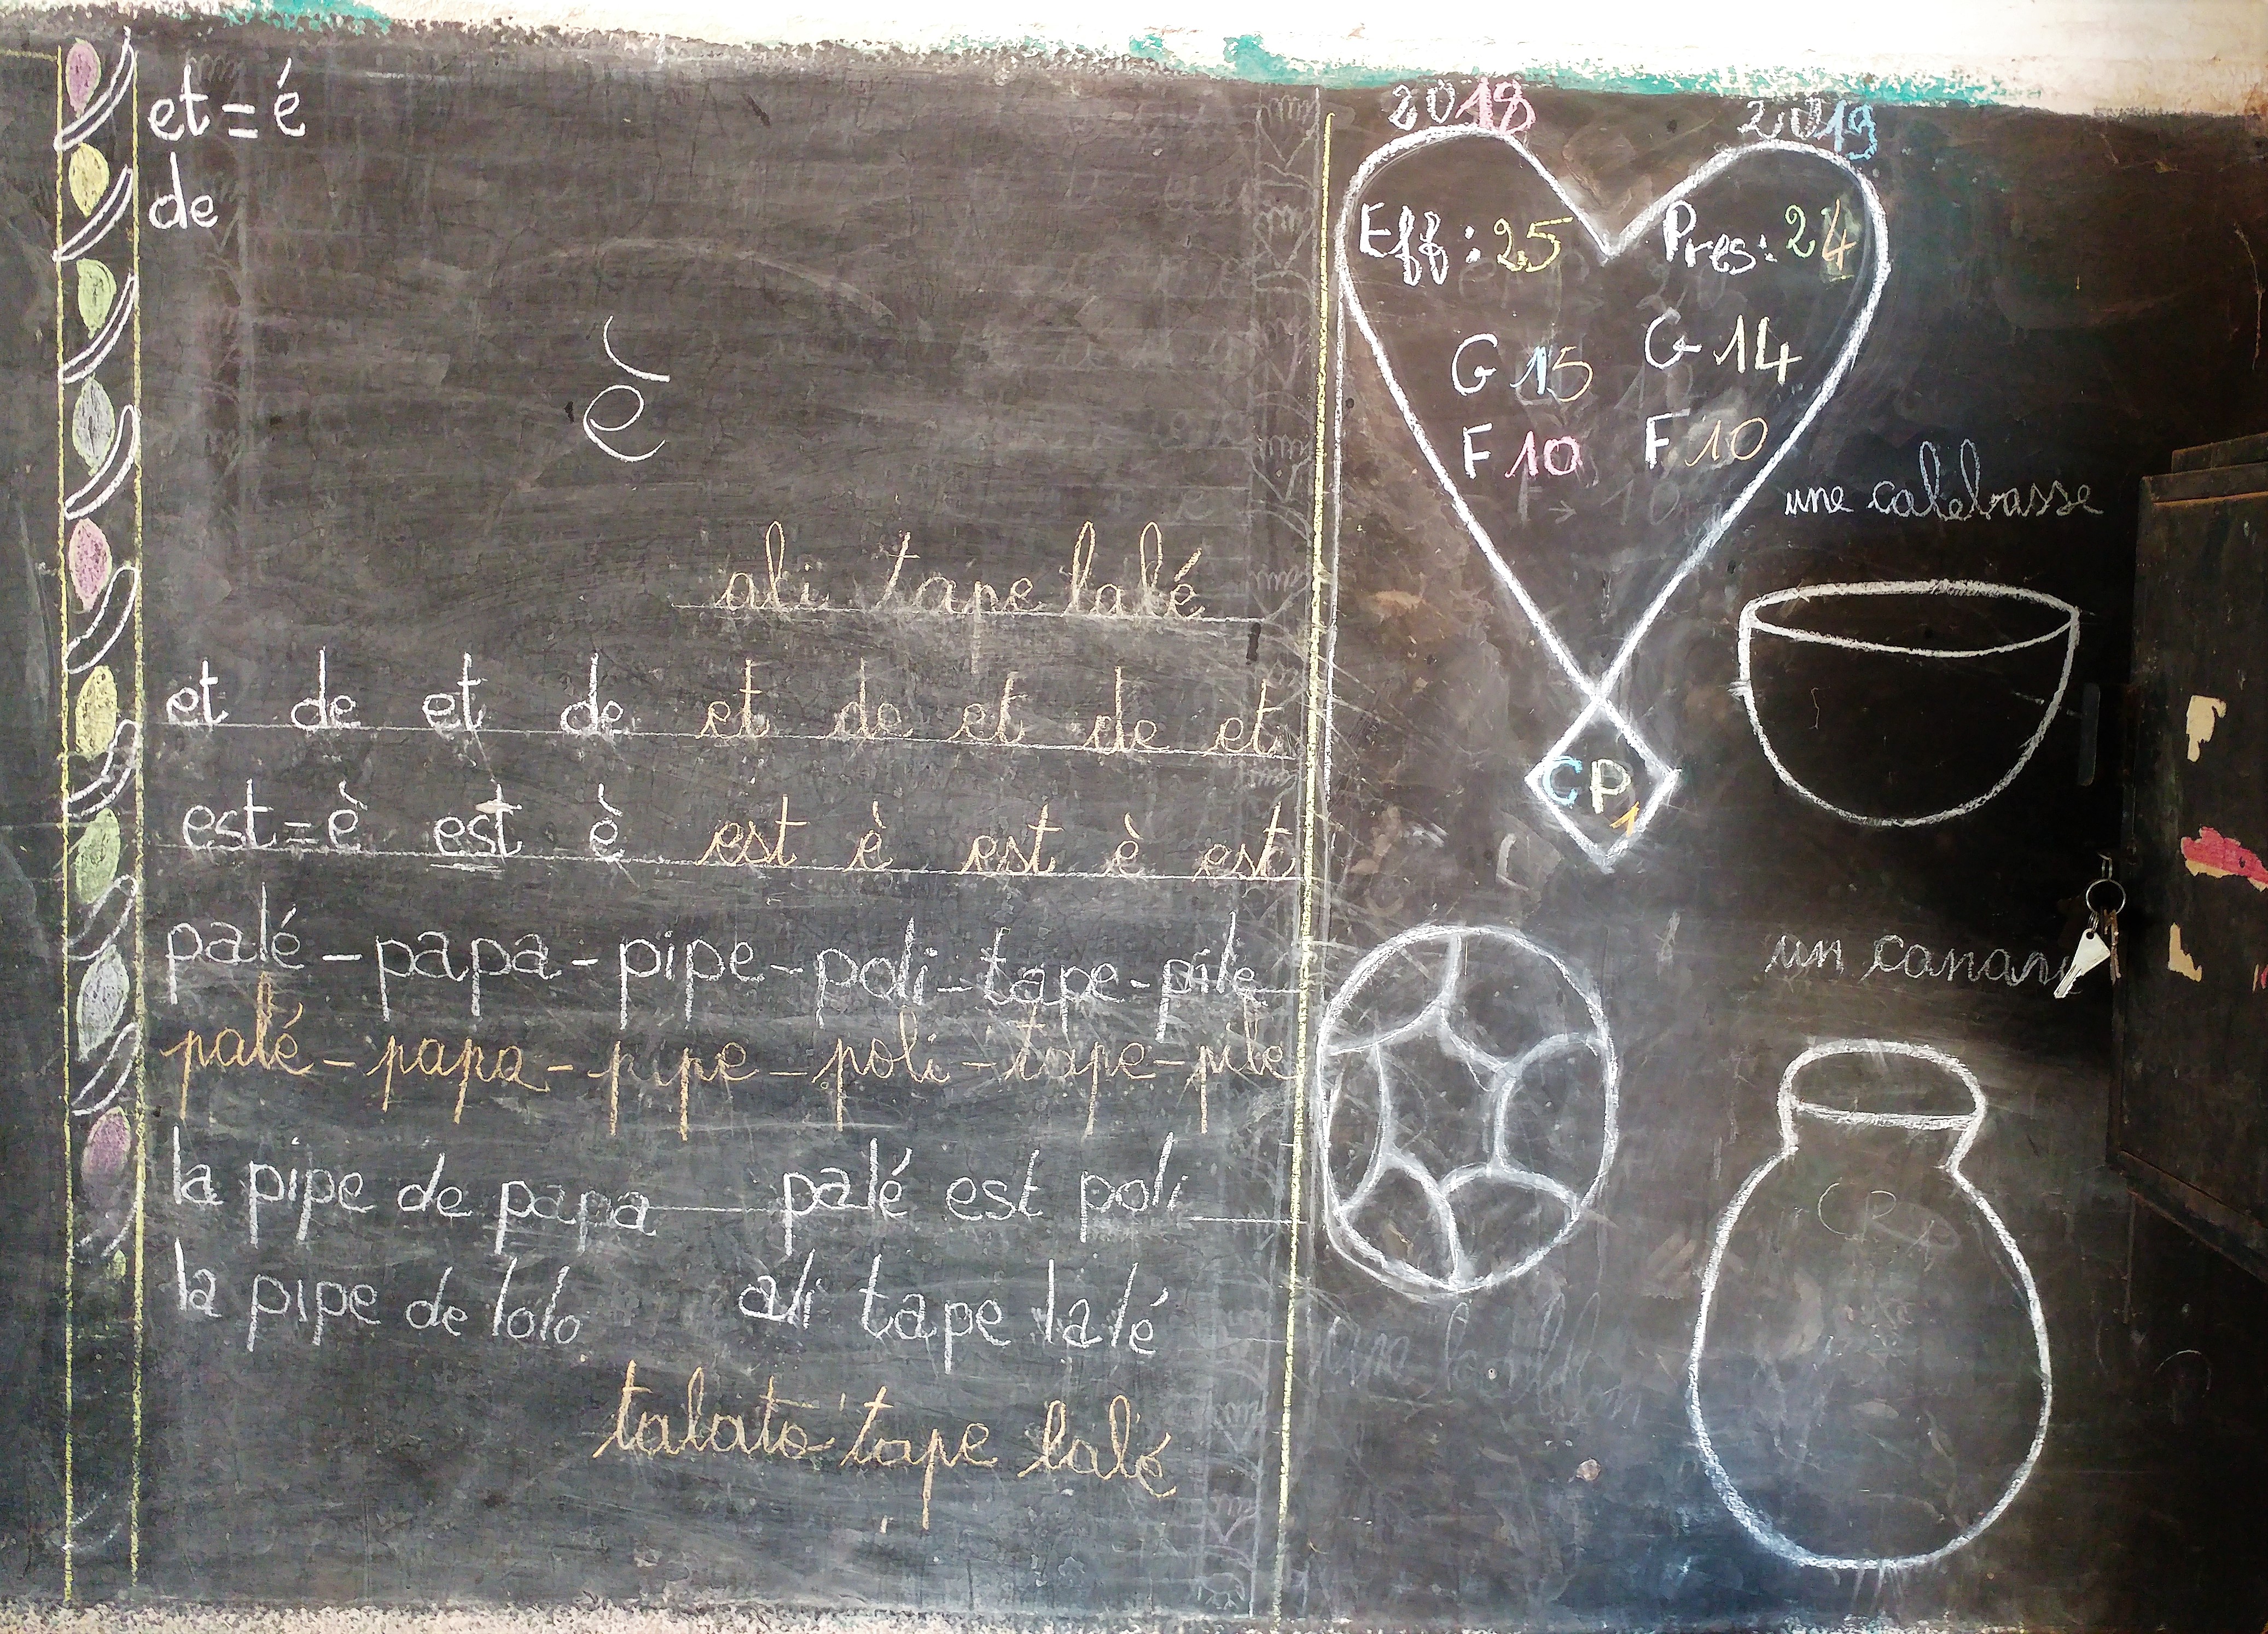 et = é
de
è
ali tape lalé
et de et de et de et de et
est = è est è est è est è est
palé - papa - pipe - poli - tape - pile
palé - papa - pipe - poli - tape - pile
la pipe de papa palé est poli
la pipe de lolo ali tape lalé
talato tape lalé
2018 2019
Eff : 25 Pres : 24
G 15 G 14
F 10 F 10
CP1
une calebasse
un canari
CP1